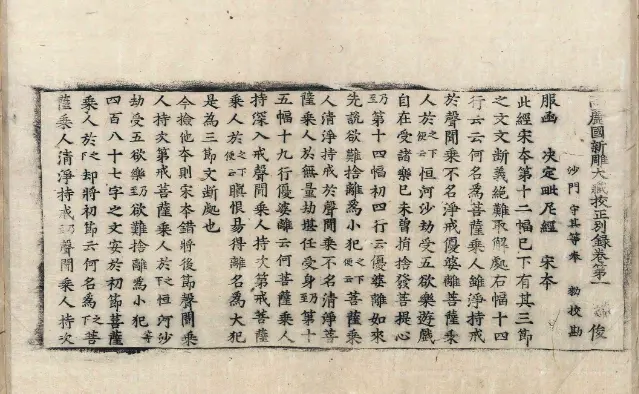 麗國新雕大藏校正別錄卷第一 俊
沙門 守其等奉 勑校勘
服函 决定毗尼經 宋本
此經宋本第十二幅已下有其三節
之文文斷義絕難取解處右幅十四
行云云何名為菩薩乘人雖淨持戒
於聲聞乘不名淨戒優婆離菩薩乘
人於之下便云恒河沙劫受五欲樂遊戲
自在受諸樂已未曾捎捨發菩提心
乃至第十四幅初四行云優婆離如來
先說欲難捨離為小犯之下便云菩薩乘
人清淨持戒於聲聞乘不名清淨菩
薩乘人於無量劫堪任受身乃至第十
五幅十九行優婆離云何菩薩乘人
持深入戒聲聞乘人持次第戒菩薩
乘人於之下便云瞋恨易得離名為大犯
是為三節文斷處也
今撿他本則宋本錯將後節聲聞乘
人持次第戒菩薩乘人於之下恒河沙
劫受五欲樂乃至欲難捨離為小犯等
四百八十七字之文安於初節菩薩
乘人於之下却將初節云何名為之下菩
薩乘人清淨持戒乃至聲聞乘人持次